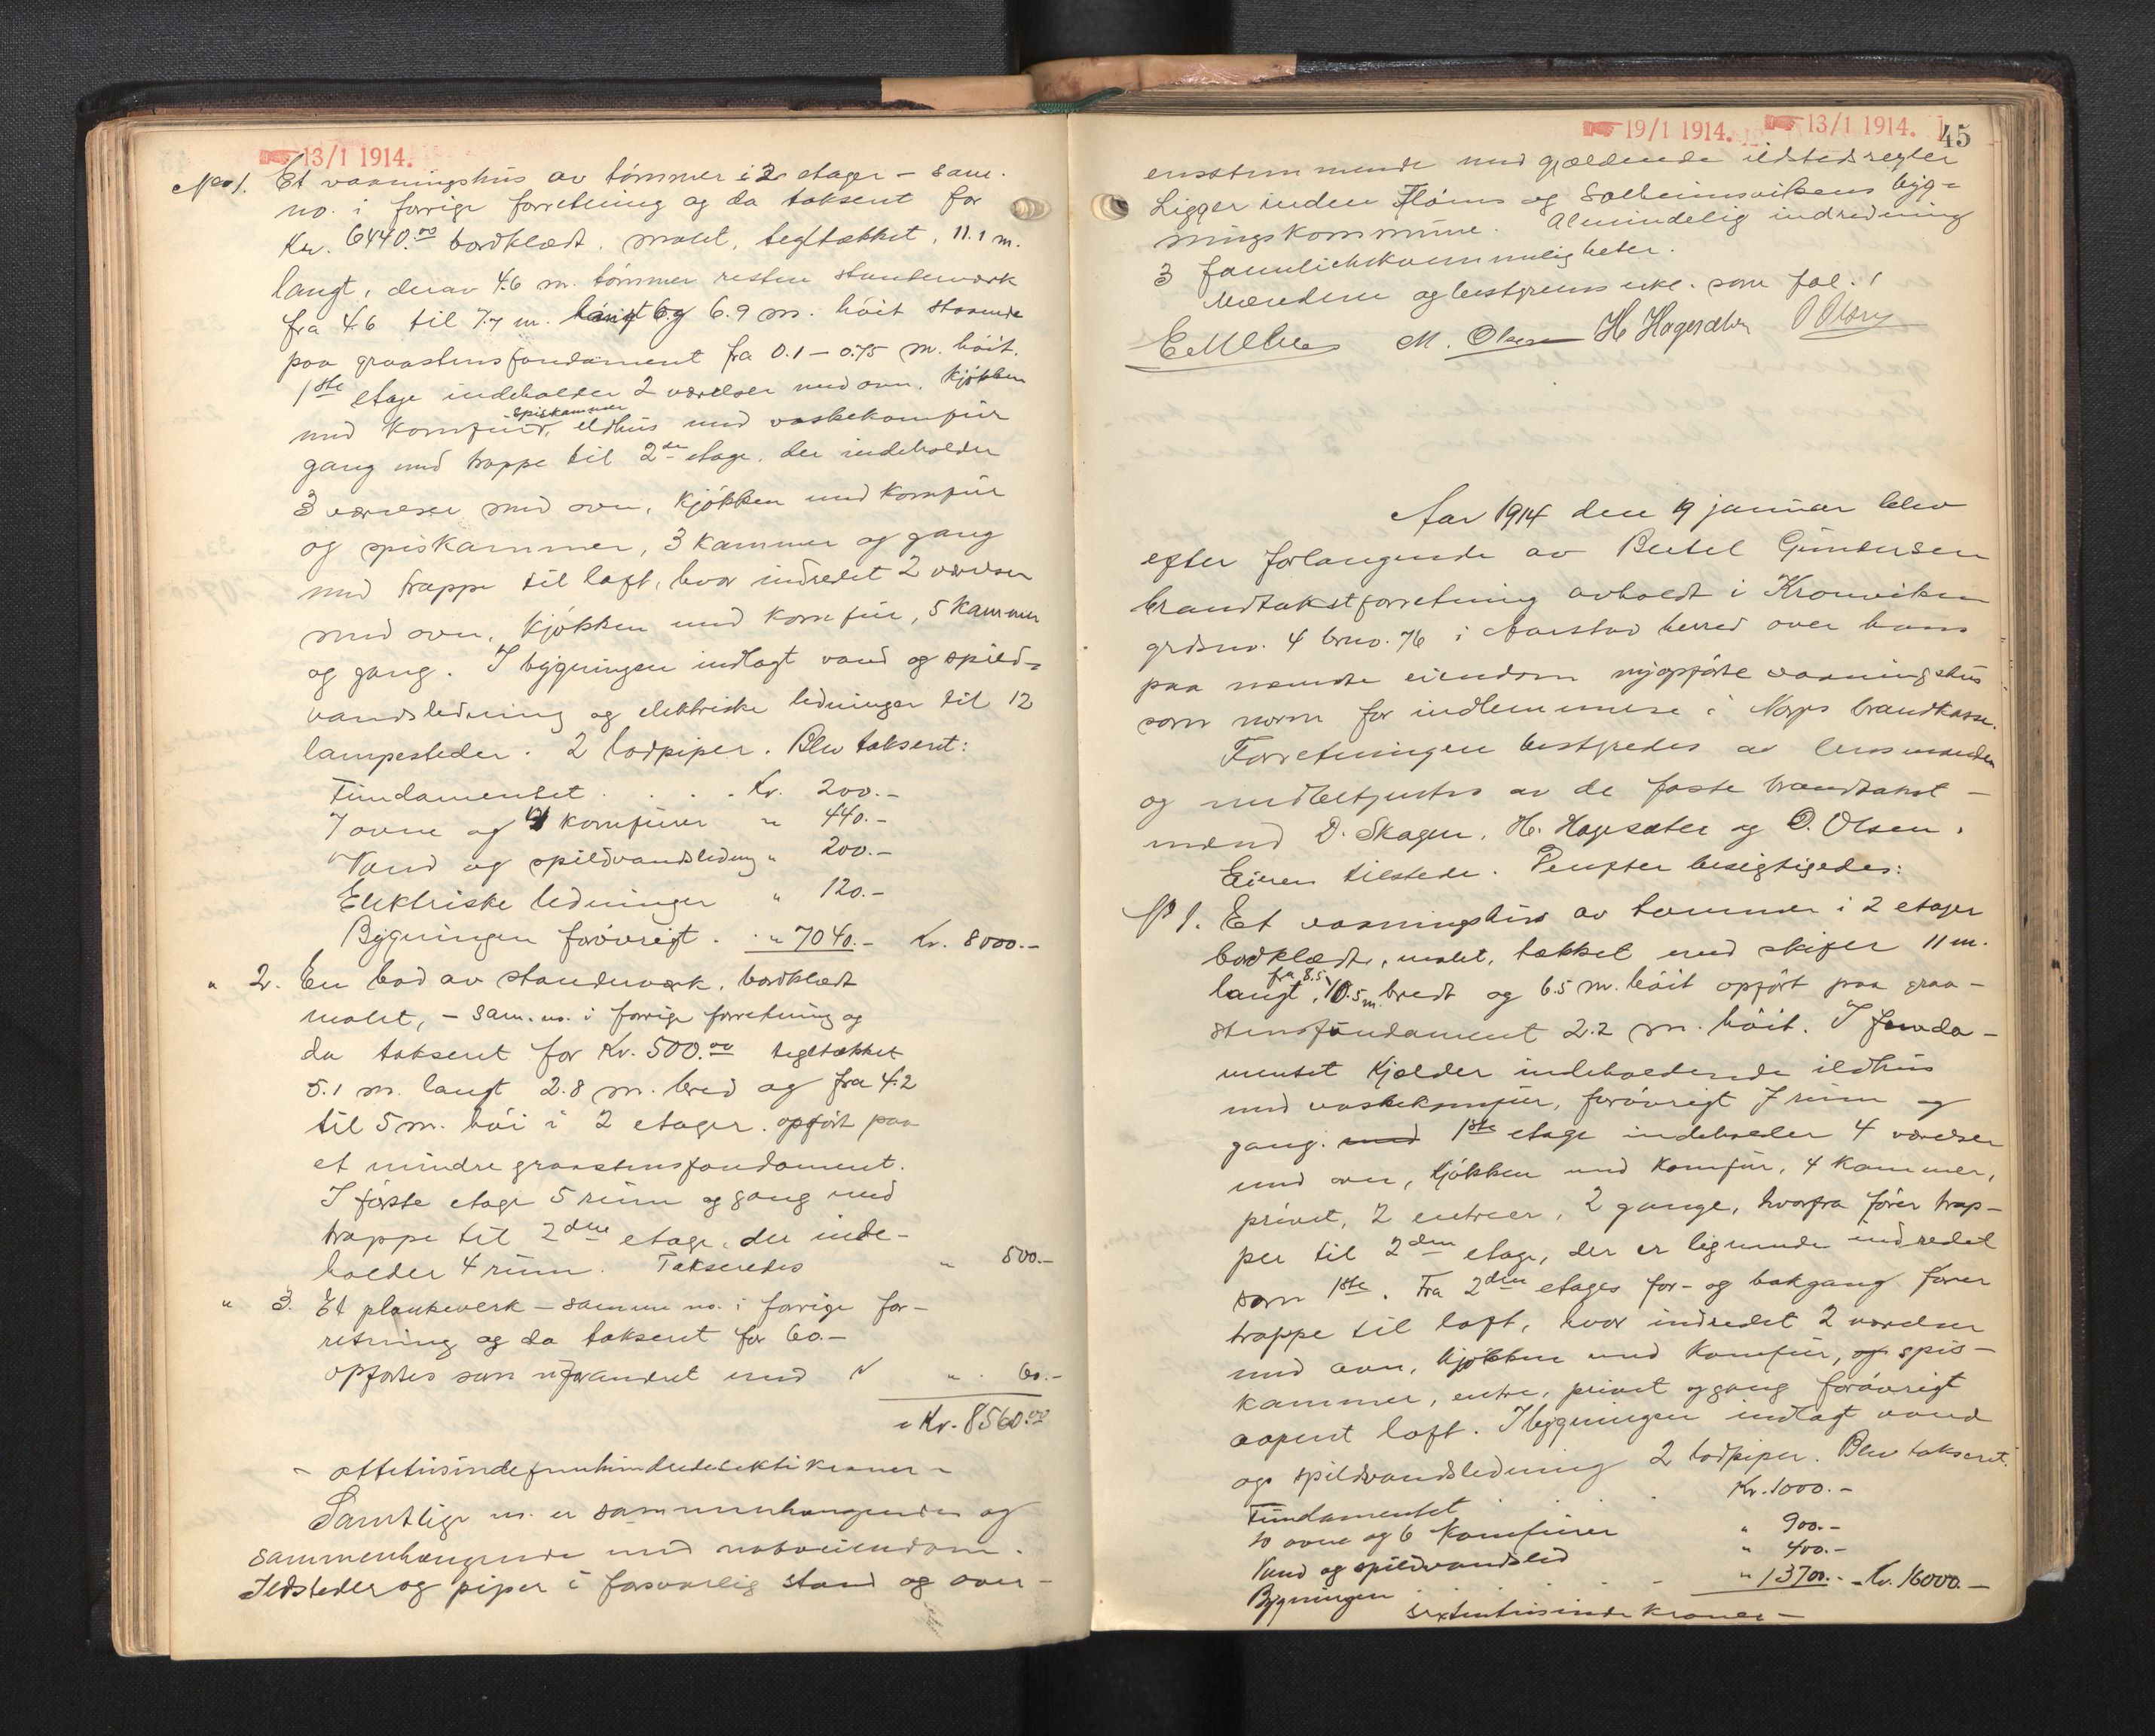 13/1 1914.
No 1. Et vaaningshus av tømmer i 2 etager – sam.
no. i forrige forretning og da taksert for
Kr. 6440.00 bordklædt, malet, tegltækket, 11.1 m.
langt, derav 4.6 m. tømmer resten standerværk
fra 4.6 til 7.7 m. og 6.9 m. høit staaende
paa graastensfondament fra 0.1 – 0.75 m. høit.
1ste etage indeholder 2 værelser med ovn, kjøkken
med komfur, spiskammer, ildhus med vaskekomfur
gang med trappe til 2den etage, der indeholder
3 værelser med ovn, kjøkken med komfur
og spiskammer, 3 kammer og gang
med trappe til loft, hvor indredet 2 værelser
med ovn, kjøkken med komfur, 5 kammer
og gang. I bygningen indlagt vand og spild-
vandsledning og elektriske ledninger til 12
lampesteder. 2 lodpiper. Blev taksert:
Fundamentet . . . Kr. 200.–
7 ovne og komfurer " 440.–
Vand og spildvandsledning " 200.–
Elektriske ledninger " 120.–
Bygningen forøvrigt . . " 7040.– Kr. 8000.–
" 2. En bod av standerværk, bordklædt
malet, – sam. no. i forrige forretning og
da taksert for Kr. 500.00 tegltækket
5.1 m. langt 2.8 m. bred og fra 4.2
til 5 m. høi i 2 etager. opført paa
et mindre graastensfondament.
I første etage 5 rum og gang med
trappe til 2den etage, der inde-
holder 4 rum. Takseredes " 500.–
" 3. Et plankeverk – samme no. i forrige for-
retning og da taksert for 60.–
opførtes som uforandret med " . 60.–
Kr. 8560.00
– ottetusindefemhundredeseksti kroner –
Samtlige no. er sammenhængende og
sammenhængende med naboeiendom.
Ildsteder og piper i forsvarlig stand og over-
19/1 1914. 13/1 1914. 45
ensstemmende med gjældende ildstedsregler
Ligger inden Fløens og Solheimsvikens byg-
ningskommune. Almindelig indredning
3 familiebekvemmeligheter.
Værdien og bestyrelse som fol. 1
M. Olsen H. Hagesæter O Olsen
Aar 1914 den 19 januar blev
efter forlangende av Bertel Gundersen
brandtakstforretning avholdt i Kronviken
grdsno. 4 brno. 76 i Aarstad herred over hans
paa nævnte eiendom nyopførte vaaningshus
som norm for indlemmelse i Norges brandkasse.
Forretningen bestyredes av lensmanden
og medbetjentes av de faste brandtakst-
mænd D. Skagen, H. Hagesæter og O. Olsen.
Eieren tilstede. Derefter besigtigedes:
No 1. Et vaaningshus av tømmer i 2 etager
bordklædt, malet, tækket med skifer 11 m.
langt, fra 8.5, 10.5 m. bredt og 6.5 m. høit opført paa graa-
stensfundament 2.2 m. høit. I funda-
mentet kjelder indeholdende ildhus
med vaskekomfur, forøvrigt 7 rum og
gang. med 1ste etage indeholder 4 værelser
med ovn, kjøkken med komfur, 4 kammer,
privet, 2 entreer, 2 gange, hvorfra fører trap-
per til 2den etage, der er lignende indredet
som 1ste. Fra 2den etages for- og bakgang fører
trappe til loft, hvor indredet 2 værelser
med ovn, kjøkken med komfur, og spis-
kammer, entre, privet og gang forøvrigt
aapent loft. I bygningen indlagt vand
og spildvandsledning 2 lodpiper. Blev taksert:
Fundamentet . Kr. 1000.–
10 ovne og 6 komfurer " 900.–
Vand og spildvandsled " 400.–
Bygningen – " 13700.– Kr. 16000.–
sextentusinde kroner –